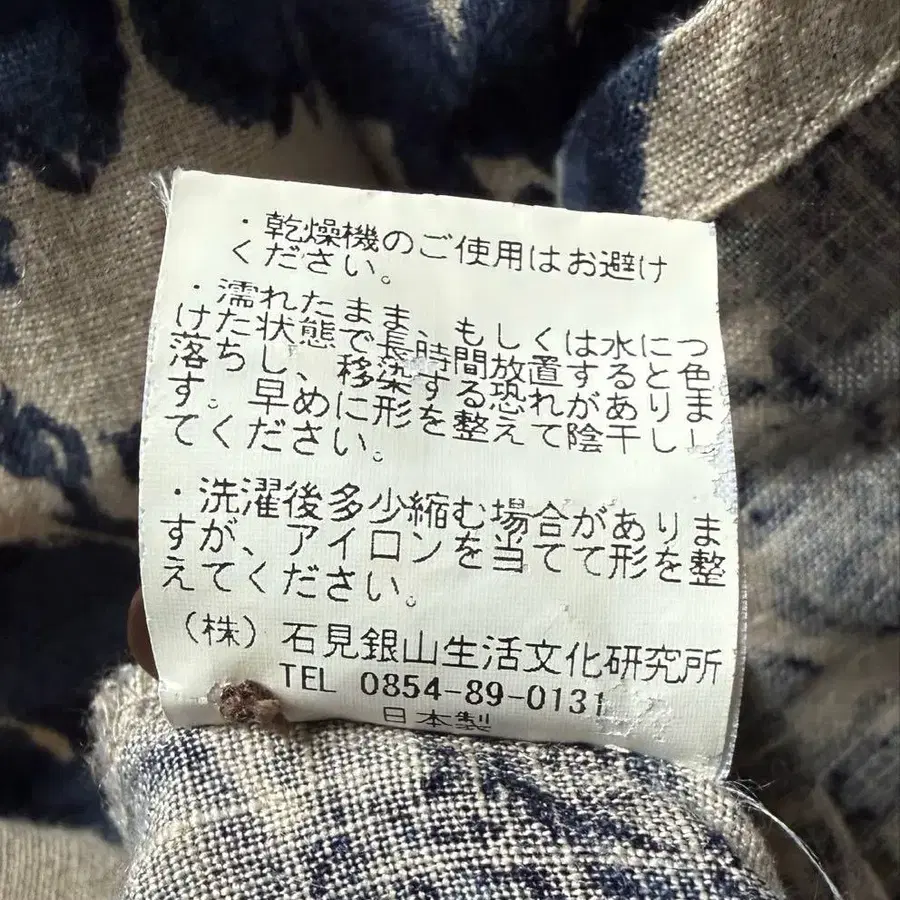 ・乾燥機のご使用はお避け
ください。
・濡れたまま、もしくは水につ
けた状態で長時間放置すると色
落ちし、移染する恐れがありま
す。早めに形を整えて陰干し
てください。
・洗濯後多少縮む場合がありま
すが、アイロンを当てて形を整
えてください。
（株）石見銀山生活文化研究所
TEL 0854-89-0131
日本製